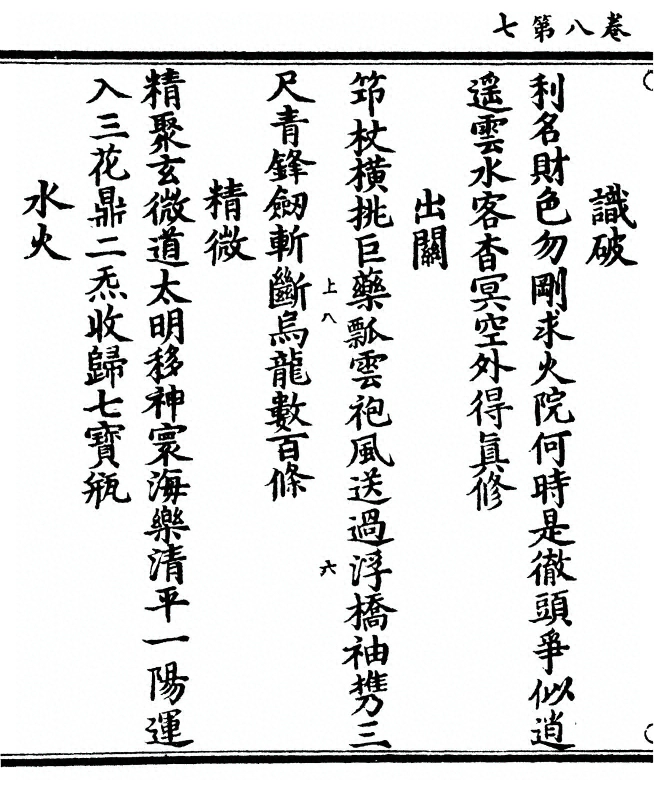 七第八卷
識破
利名財色勿剛求火院何時是徹頭爭似逍
遥雲水客杳冥空外得眞修
出關
笻杖橫挑巨藥瓢雲袍風送過浮橋袖携三
上八
六
尺青鋒劒斬斷烏龍數百條
精微
精聚玄微道太明移神寰海樂清平一陽運
入三花鼎二炁收歸七寶瓶
水火